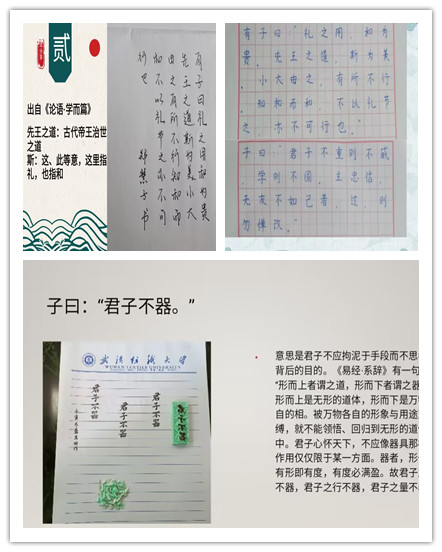 贰
出自《论语·学而篇》
先王之道：古代帝王治世
之道
斯：这、此等意，这里指
礼，也指和
有子曰礼之用和为贵
先王之道斯为美小大
由之有所不行知和而
和不以礼节之亦不可
行也
有子曰：“礼之用，和为
贵，先王之道，斯为美，
小大由之，有所不行，
知和而和，不以礼节
之，亦不可行也。”
子曰：“君子不重则不威，
学则不固，主忠信，
无友不如己者，过，则
勿惮改。”
子曰：“君子不器。”
WUHAN TEXTILE UNIVERSITY
君子不器
君子不器
君子不器
意思是君子不应拘泥于手段而不思
背后的目的。《易经·系辞》有一句
“形而上者谓之道，形而下者谓之器
形而上是无形的道体，形而下是万
自的相。被万物各自的形象与用途
缚，就不能领悟、回归到无形的道
中。君子心怀天下，不应像器具那
作用仅仅限于某一方面。器者，形
有形即有度，有度必满盈。故君子
不器，君子之行不器，君子之量不